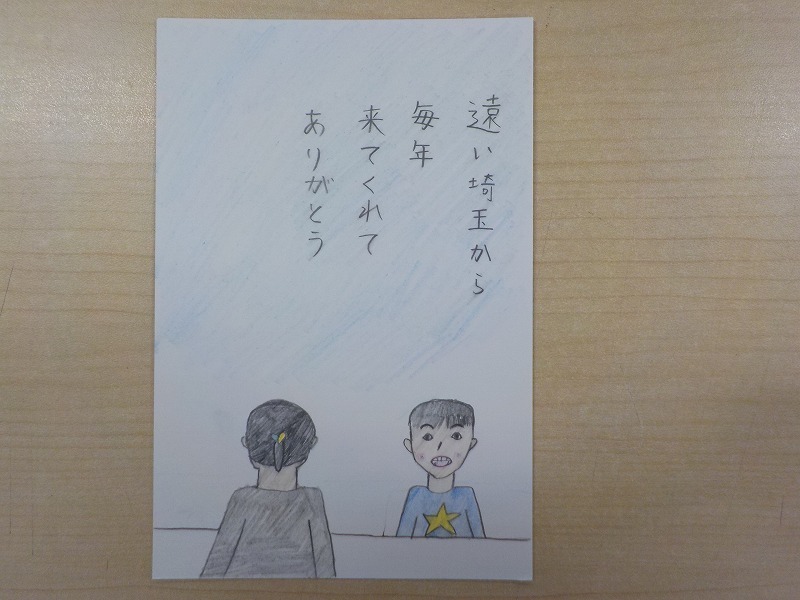 遠い埼玉から
毎年
来てくれて
ありがとう